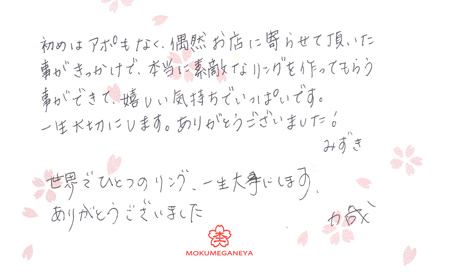 初めはアポもなく、偶然お店に寄らせて頂いた
事がきっかけで、本当に素敵なリングを作ってもらう
事ができて、嬉しい気持ちでいっぱいです。
一生大切にします。ありがとうございました！
みずき
世界でひとつのリング、一生大事にします。
ありがとうございました
MOKUMEGANEYA